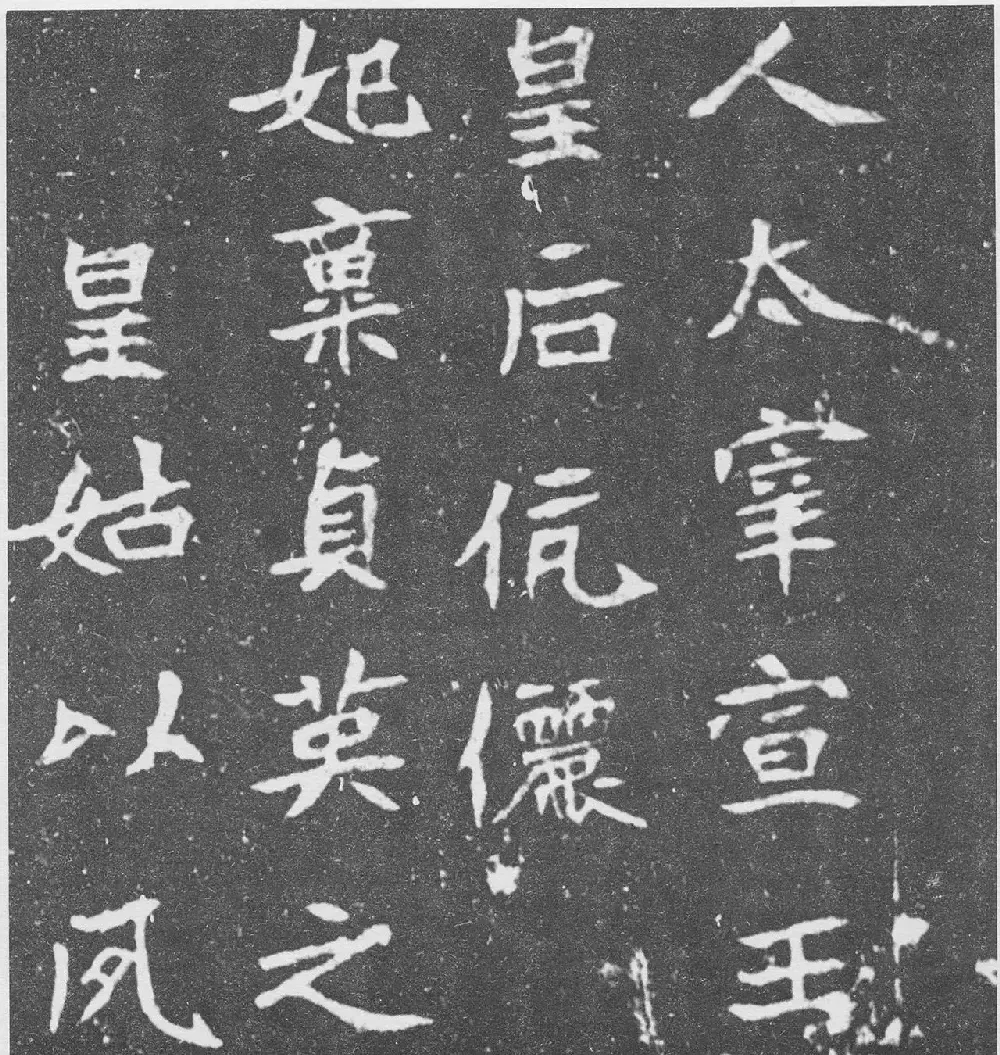 人太宰宣王
皇后伉儷
妃稟貞英之
皇姑以夙